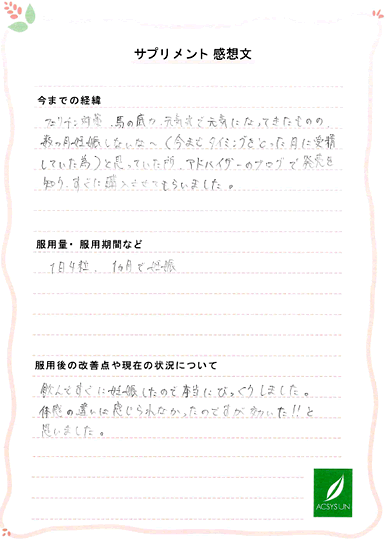 サプリメント 感想文
今までの経緯
フェリチン対策、馬の底力、元気丸で元気になってきたものの
数ヶ月妊娠しないな〜（今までタイミングをとった月に受精
していた為）と思っていた所、アドバイザーのブログで発売を
知り、すぐに購入させてもらいました。
服用量・服用期間など
1日4粒、1ヵ月で妊娠
服用後の改善点や現在の状況について
飲んですぐに妊娠したので本当にびっくりしました。
体感の違いは感じられなかったのですが効いた!!と
思いました。
ACSYSLIN